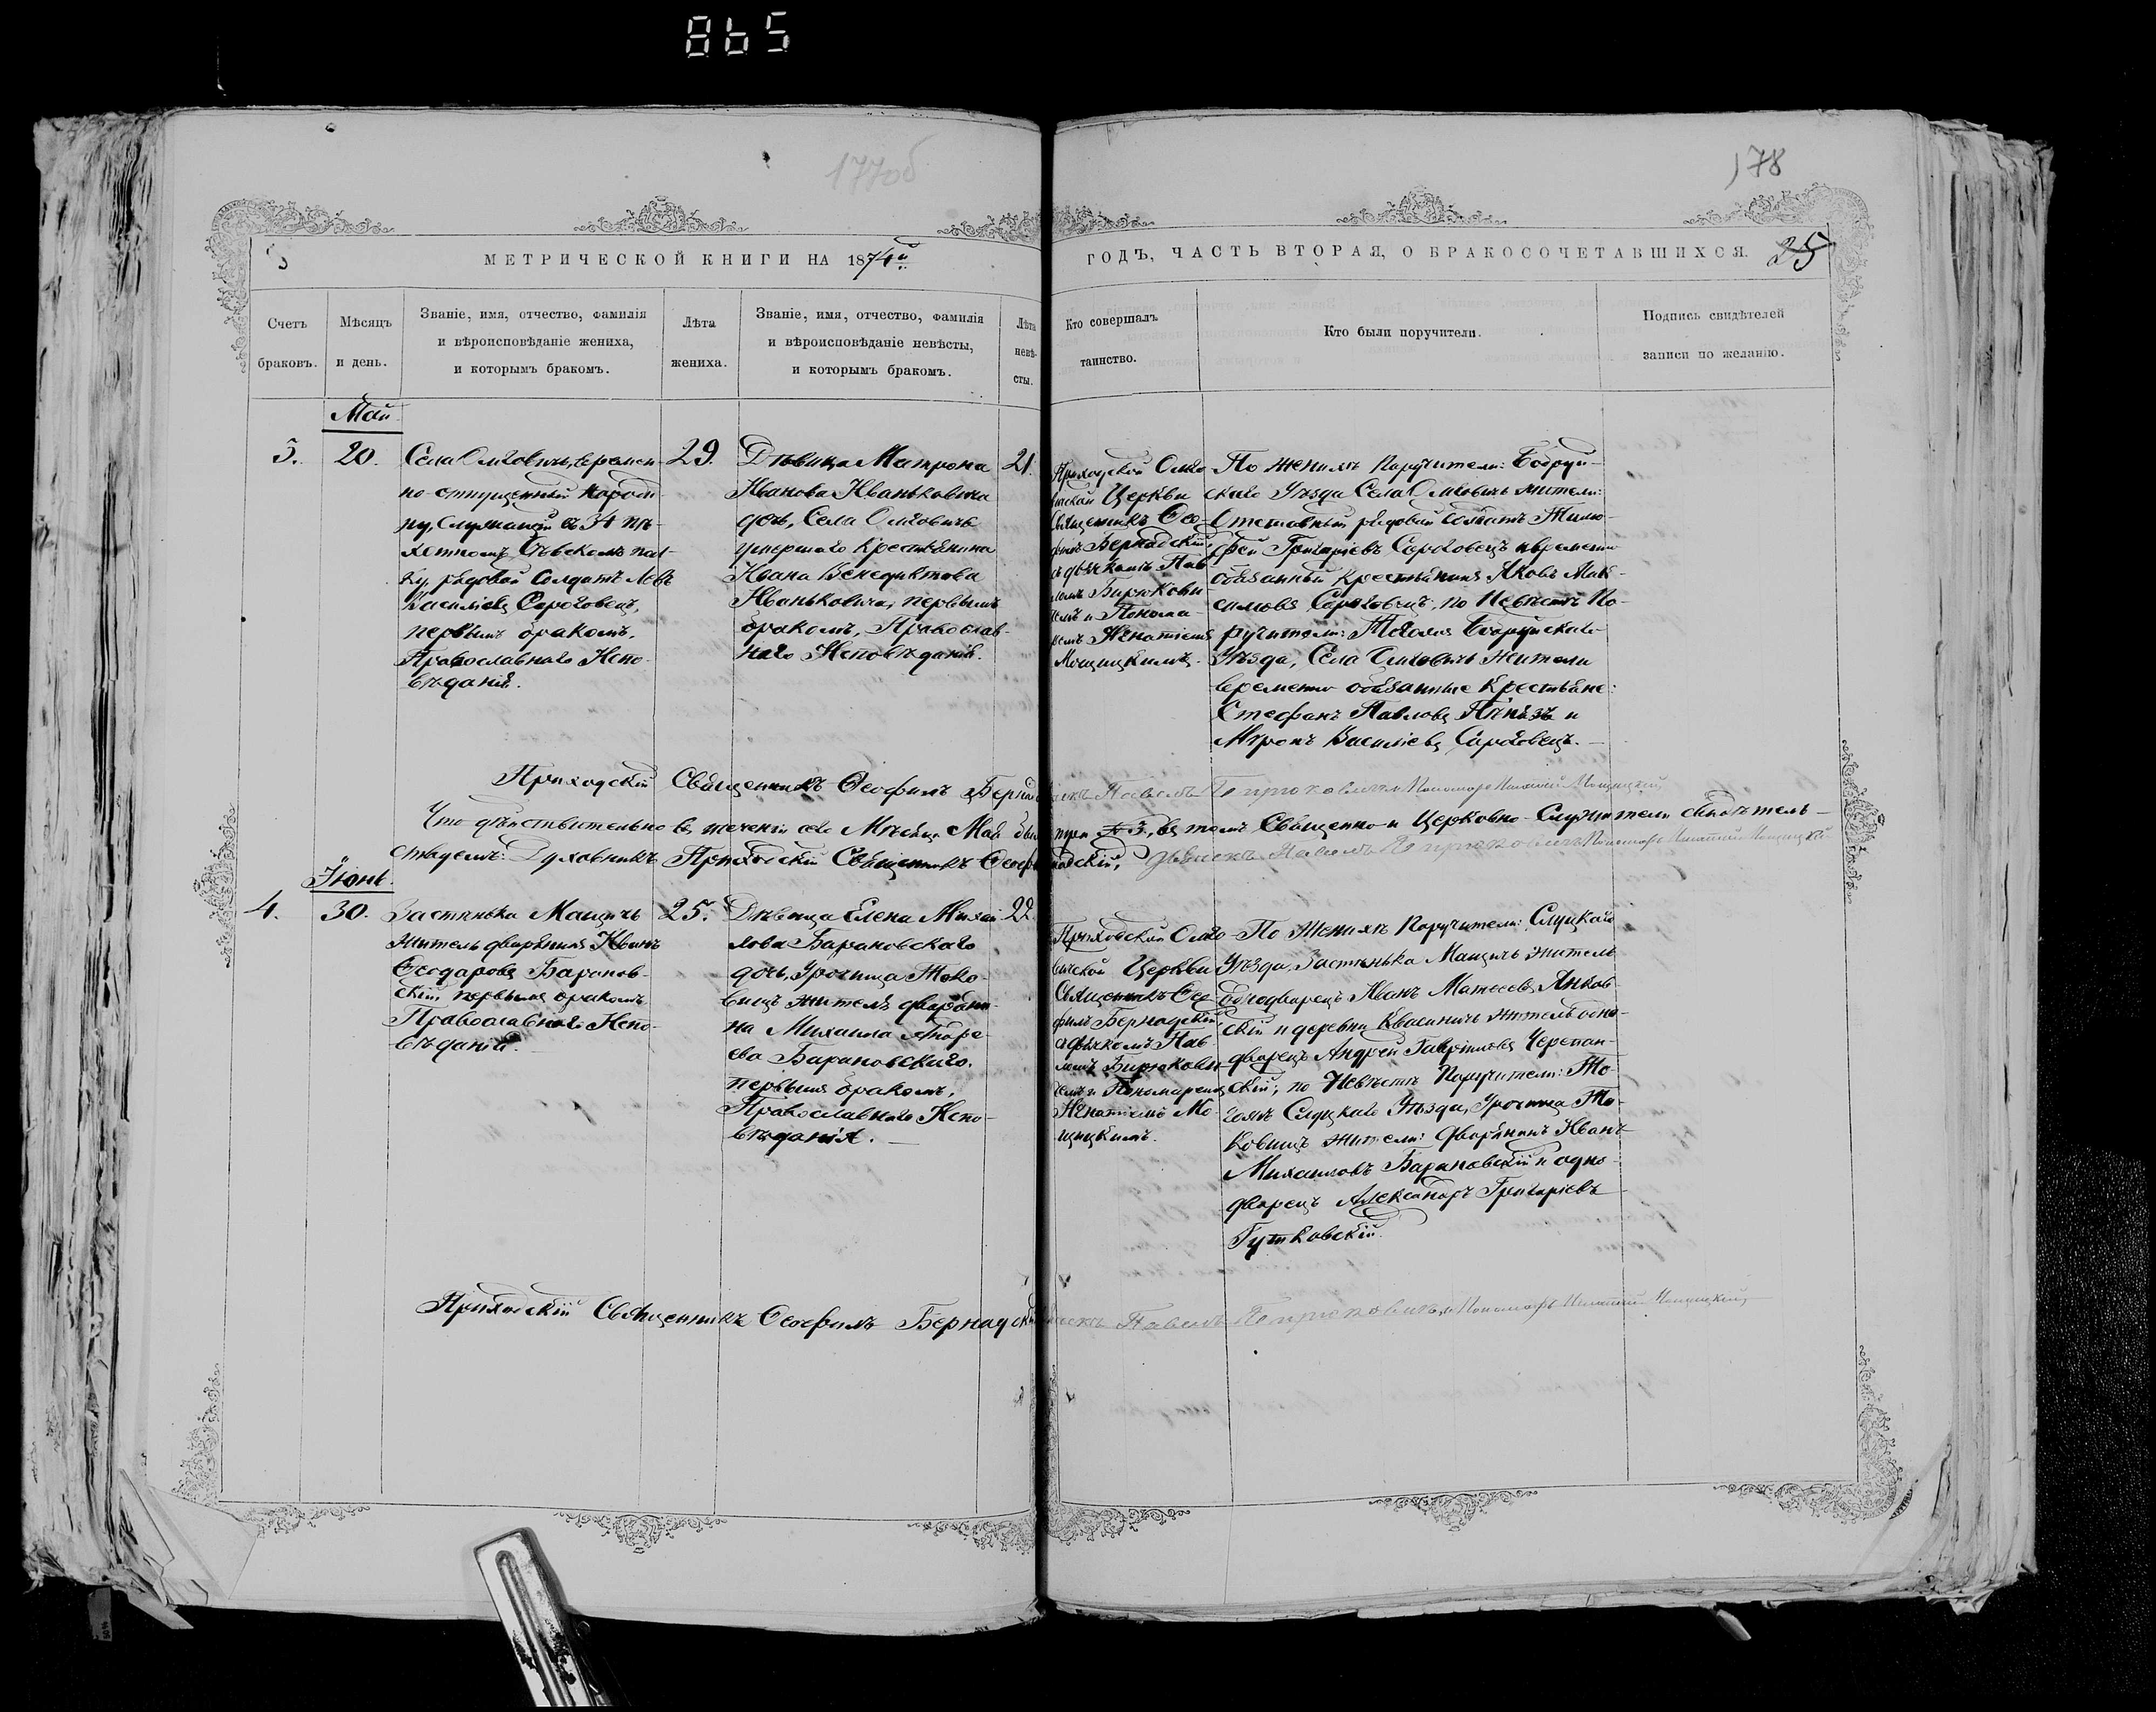 865
177об
178
МЕТРИЧЕСКОЙ КНИГИ НА 1874й
ГОДЪ, ЧАСТЬ ВТОРАЯ, О БРАКОСОЧЕТАВШИХСЯ. 25
Счетъ
браковъ.
Мѣсяцъ
и день.
Званіе, имя, отчество, фамилія
и вѣроисповѣданіе жениха,
и которымъ бракомъ.
Лѣта
жениха.
Званіе, имя, отчество, фамилія
и вѣроисповѣданіе невѣсты,
и которымъ бракомъ.
Лѣта
невѣ-
сты.
Кто совершалъ
таинство.
Кто были поручители.
Подпись свидѣтелей
записи по желанію.
Май
3.
20.
Села Омговичъ, времен-
но-отпущенный на роди-
ну, служащій въ 34 пѣ-
хотномъ Сѣвскомъ пол-
ку, рядовой солдатъ Левъ
Василіевъ Сороговецъ,
первымъ бракомъ,
Православнаго Испо-
вѣданія.
29.
Дѣвица Матрона
Иванова Иваньковича
дочь, Села Омговичъ
умершаго Крестьянина
Ивана Венедиктова
Иваньковича, первымъ
бракомъ, Православ-
наго Исповѣданія.
21.
Приходской Омго-
вичской Церкви
Священникъ Ѳео-
филъ Бернадскій,
съ дьячкомъ Пав-
ломъ
и Понома-
ремъ Игнатіемъ
Мощицкимъ.
По Женихѣ Поручители: Бобруй-
скаго Уѣзда Села Омговичъ жители:
Отставный рядовой Солдатъ Тимо-
фей Григоріевъ Сороговецъ и временно
обязанный Крестьянинъ Яковъ Мак-
симовъ Сороговецъ, по Невѣстѣ По-
ручители: Тогоже Бобруйскаго
Уѣзда, Села Омговичъ Жители
временно обязанные Крестьяне:
Стефанъ Павловъ и
Миронъ Василіевъ Сороговецъ.
Приходскій Священникъ Ѳеофилъ
Павелъ Пономарь Игнатій Мощицкій,
Что дѣйствительно въ теченіи сего Мѣсяца Мая
№ 3, въ томъ Священно и Церковно-Служители свидѣтель-
ствуемъ: Духовникъ Приходскій Священникъ
Дьячекъ Павелъ Пономарь Игнатій Мощицкій
Іюнь.
4.
30.
Застѣнка Мащичъ
житель дворянинъ Иванъ
Ѳеодоровъ Баранов-
скій, первымъ бракомъ
Православнаго Испо-
вѣданія.
25.
Дѣвица Елена Михай-
лова Барановскаго
дочь, Урочища Токо-
вищъ жителя дворяни-
на Михаила Андре-
ева Барановскаго,
первымъ бракомъ,
Православнаго Испо-
вѣданія.
22.
Приходской Омго-
вичской Церкви
Священникъ Ѳео-
филъ Бернадскій,
съ дьячкомъ Пав-
ломъ
и Пономаремъ
Игнатіемъ Мо-
щицкимъ.
По Женихѣ Поручители: Слуцкаго
Уѣзда, Застѣнка Мащичъ житель
Однодворецъ Иванъ Матвеевъ Янков-
скій и деревни Квасиничъ житель одно-
дворецъ Андрей Гавріиловъ Черепан-
скій; по Невѣстѣ Поручители: То-
гожъ Слуцкаго Уѣзда, Урочища То-
ковищъ жители: Дворянинъ Иванъ
Михаиловъ Барановскій и одно-
дворецъ Александръ Григоріевъ
Гутковскій.
Приходскій Священникъ Ѳеофилъ Бернадскій
Павелъ и Пономарь Игнатій Мощицкій,